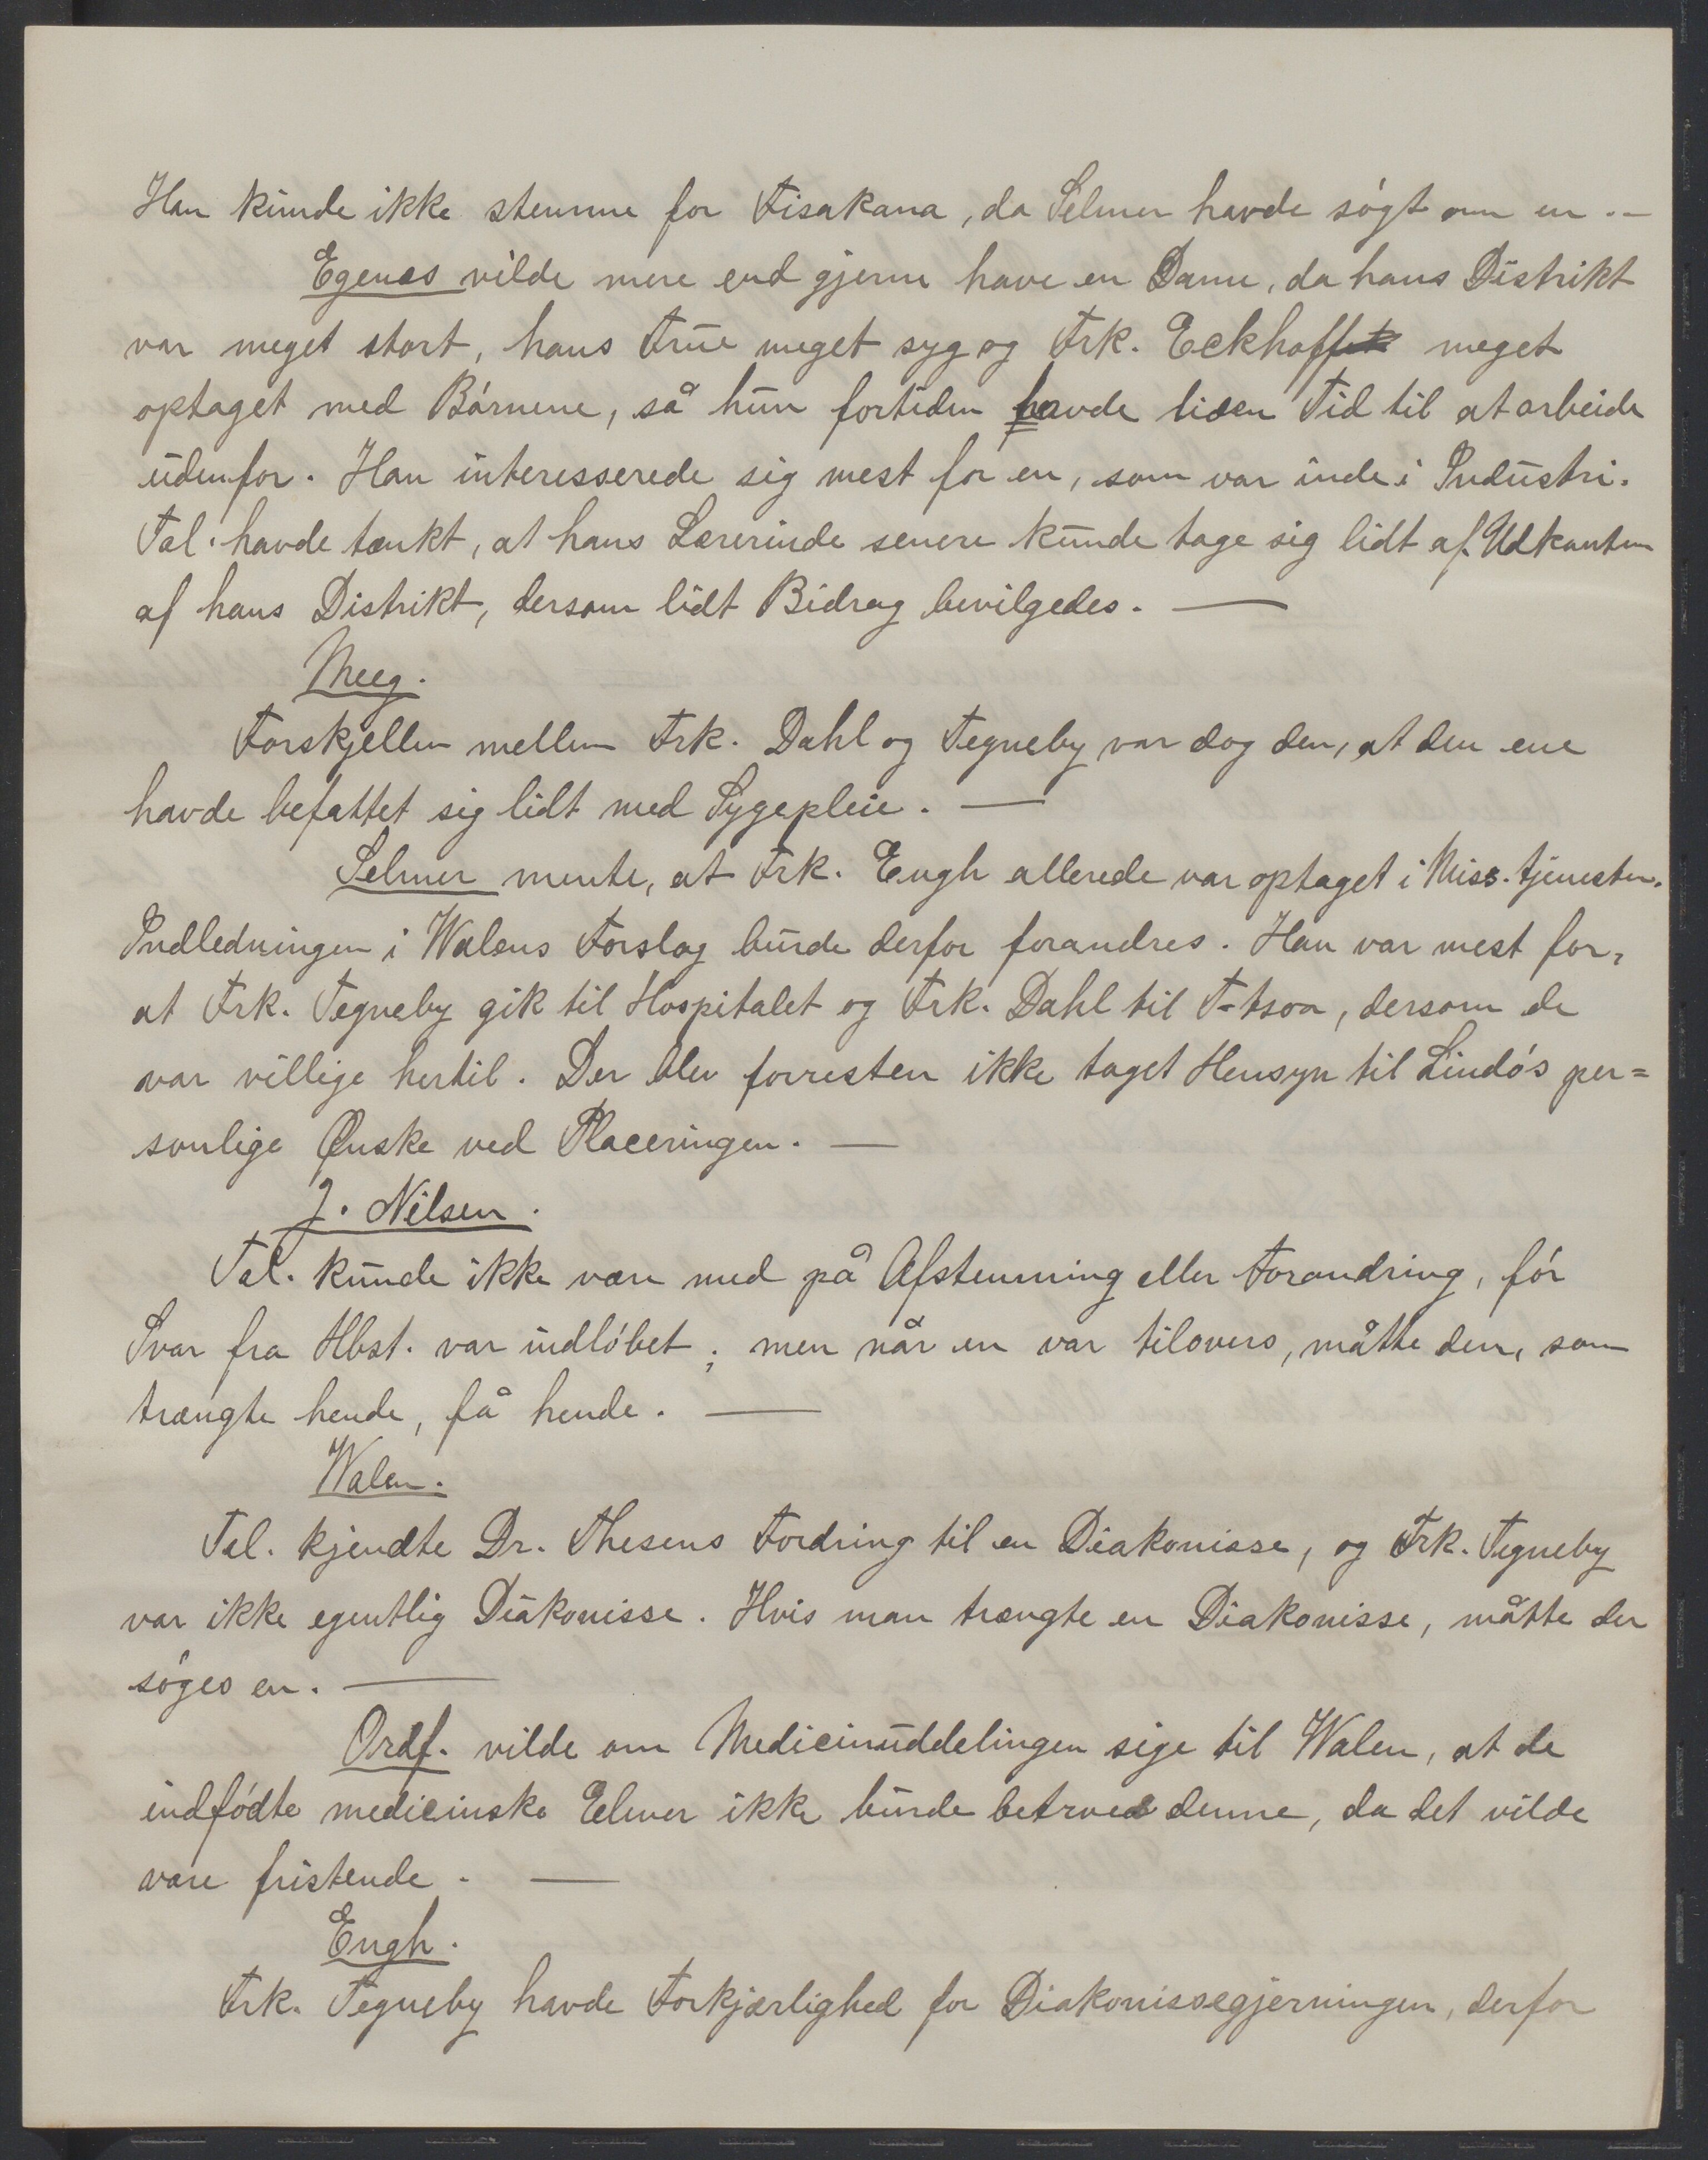 Han kunde ikke stemme for Fisakana, da Selmer havde søgt om en. —
Egenæs vilde mere end gjerne have en Dame, da hans Distrikt
var meget stort, hans Frue meget syg og Frk. Eckhoff meget
optaget med Børnene, så hun fortiden havde liden Tid til at arbeide
udenfor. Han interesserede sig mest for en, som var inde i Industri.
Tal. havde tænkt, at hans Lærerinde senere kunde tage sig lidt af Udkanten
af hans Distrikt, dersom lidt Bidrag bevilgedes. —
Meeg.
Forskjellen mellem Frk. Dahl og Tegneby var dog den, at den ene
havde befattet sig lidt med Sygepleie. —
Selmer mente, at Frk. Engh allerede var optaget i Miss. tjenesten.
Indledningen i Walens Forslag burde derfor forandres. Han var mest for,
at Frk. Tegneby gik til Hospitalet og Frk. Dahl til T-tsoa, dersom de
var villige hertil. Der blev forresten ikke taget Hensyn til Lindøs per=
sonlige Ønske ved Placeringen. —
J. Nilsen.
Tal. kunde ikke være med på Afstemning eller Forandring, før
Svar fra Hbst. var indløbet; men når en var tilovers, måtte den, som
trængte hende, få hende. —
Walen.
Tal. kjendte Dr. Thesens Fordring til en Diakonisse, og Frk. Tegneby
var ikke egentlig Diakonisse. Hvis man trængte en Diakonisse, måtte der
søges en. —
Ordf. vilde om Medicinuddelingen sige til Walen, at de
indfødte medicinske Elever ikke burde betroes denne, da det vilde
være fristende. —
Engh.
Frk. Tegneby havde Forkjærlighed for Diakonissegjerningen, derfor